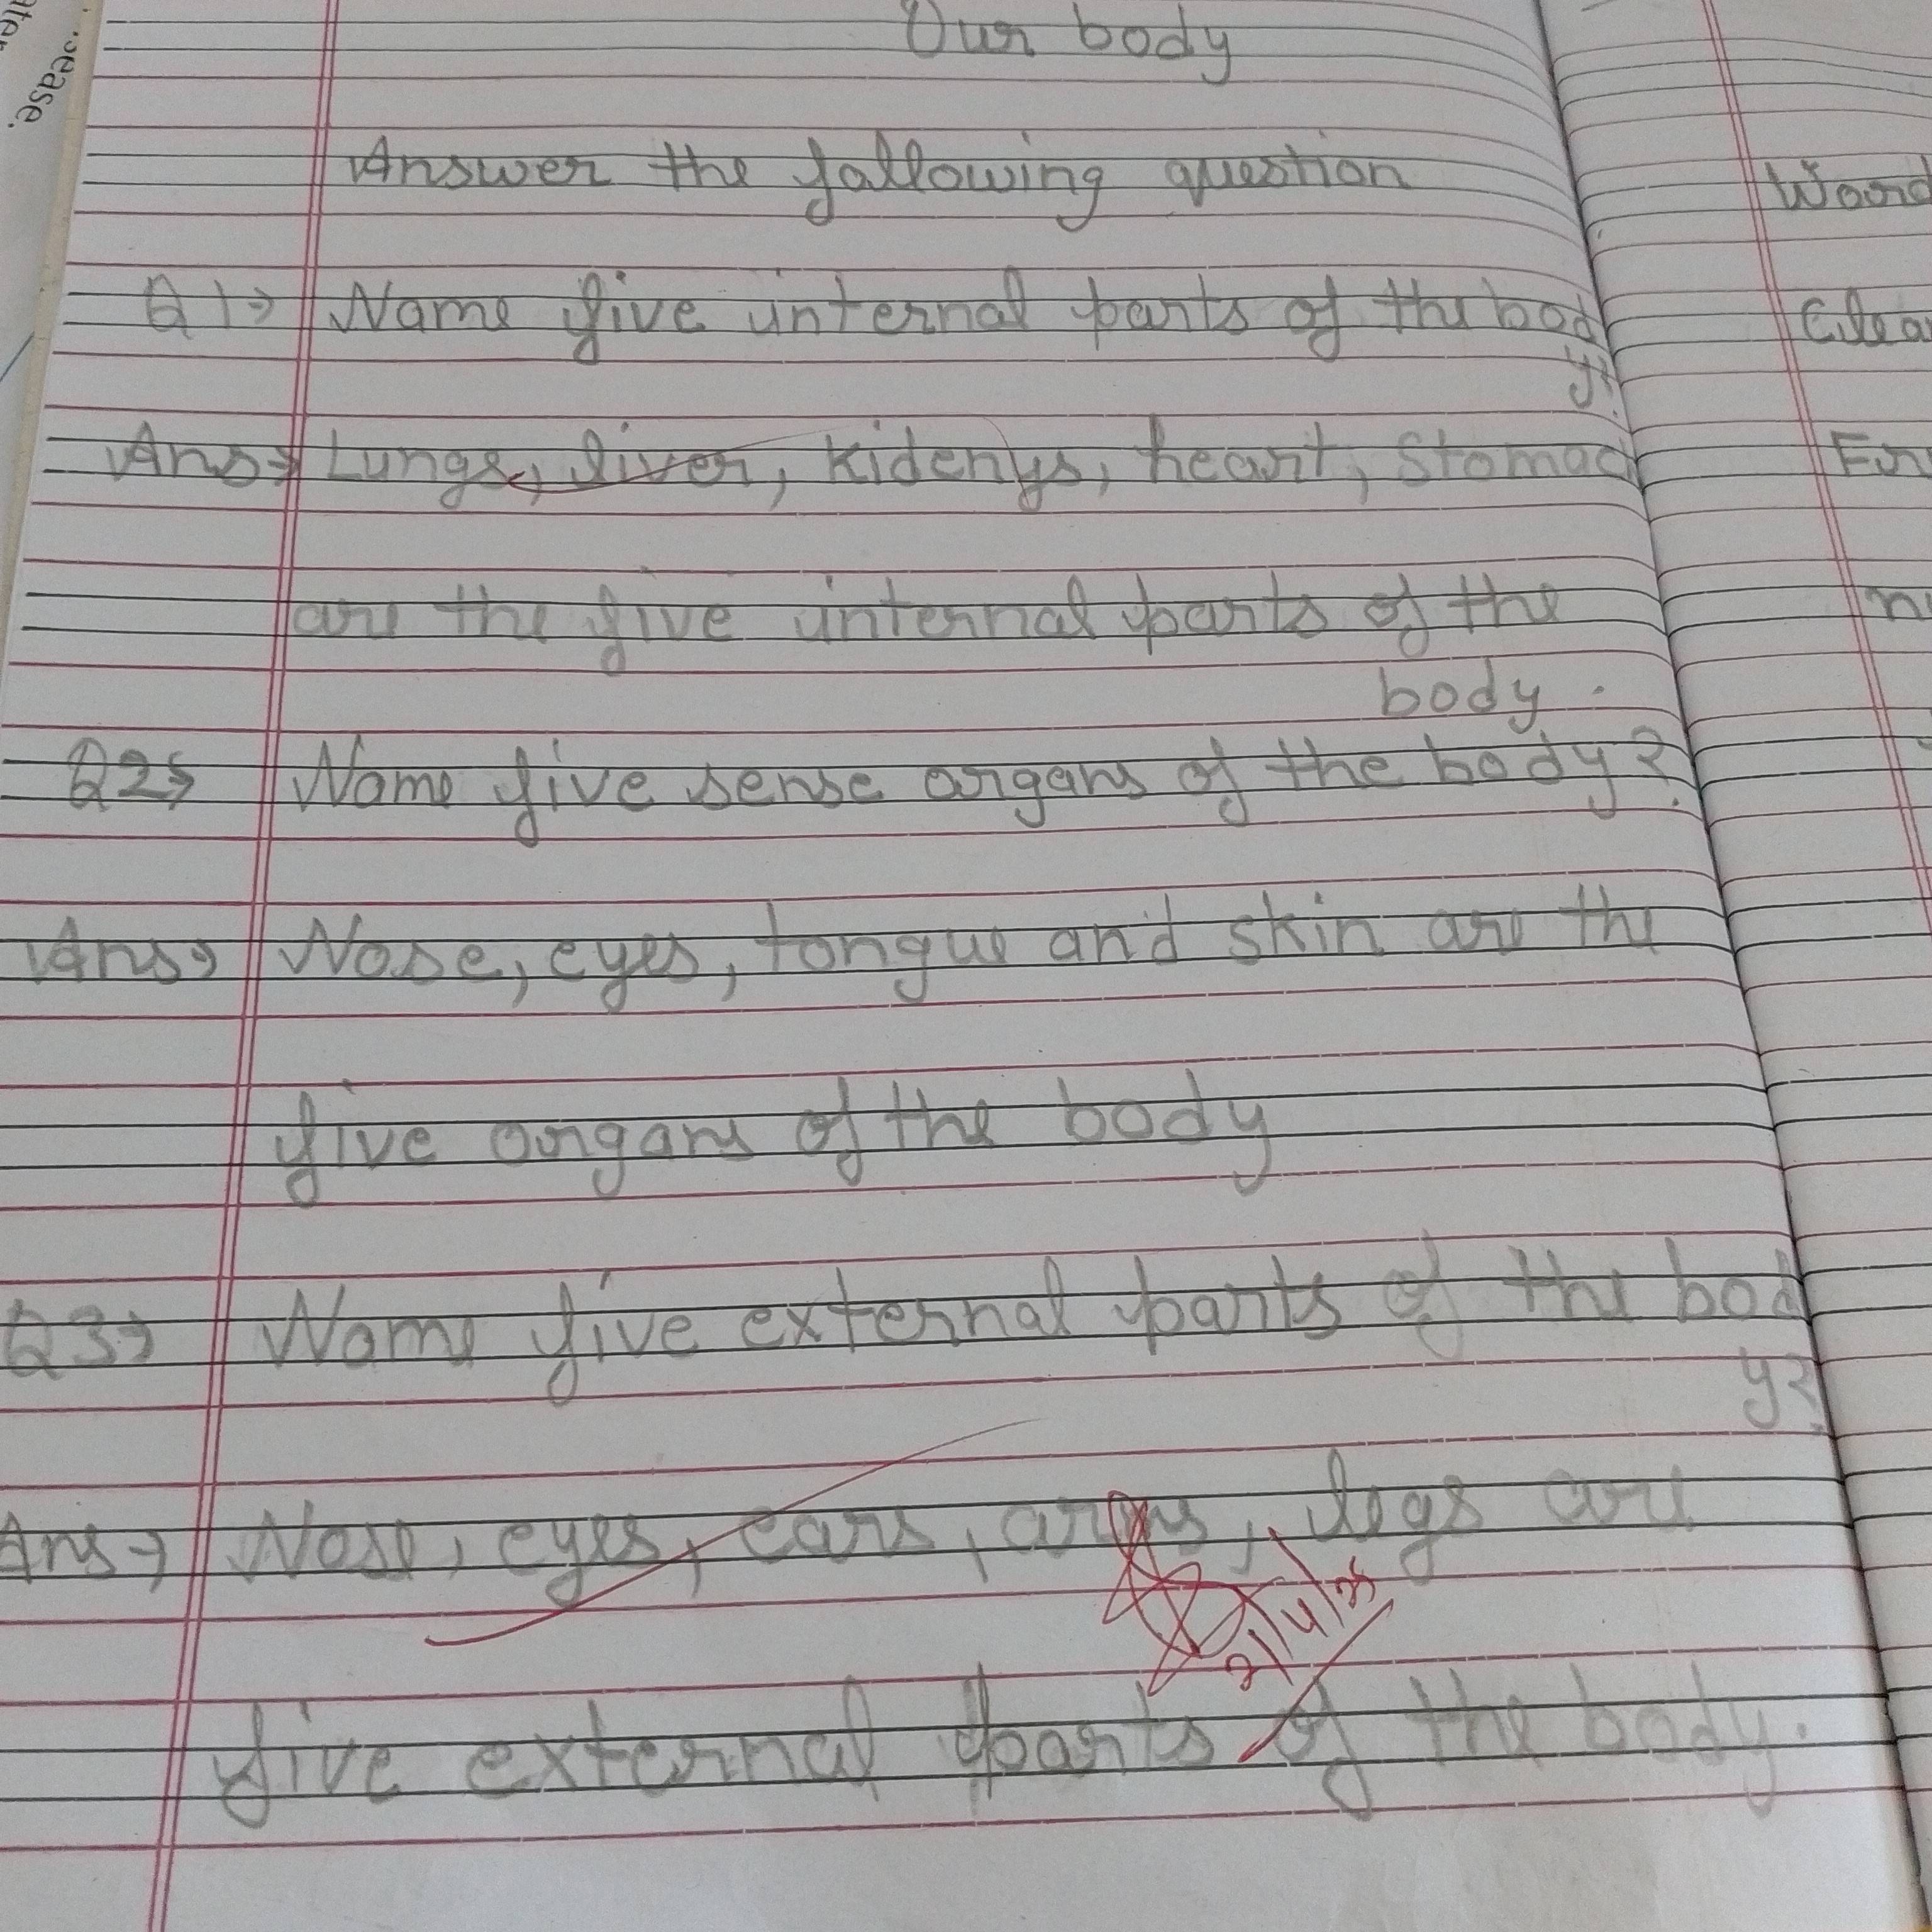 Our body
Answer the following question
Q1→ Name five internal parts of the bod
y?
Ans→ Lungs, liver, kidenys, heart, stomac
are the five internal parts of the
body.
Q2→ Name five sense organs of the body?
Ans→ Nose, eyes, tongue and skin are the
five organs of the body
Q3→ Name five external parts of the bod
y?
Ans→ Nose, eyes, ears, arms, legs are
21/4/25
five external parts of the body.